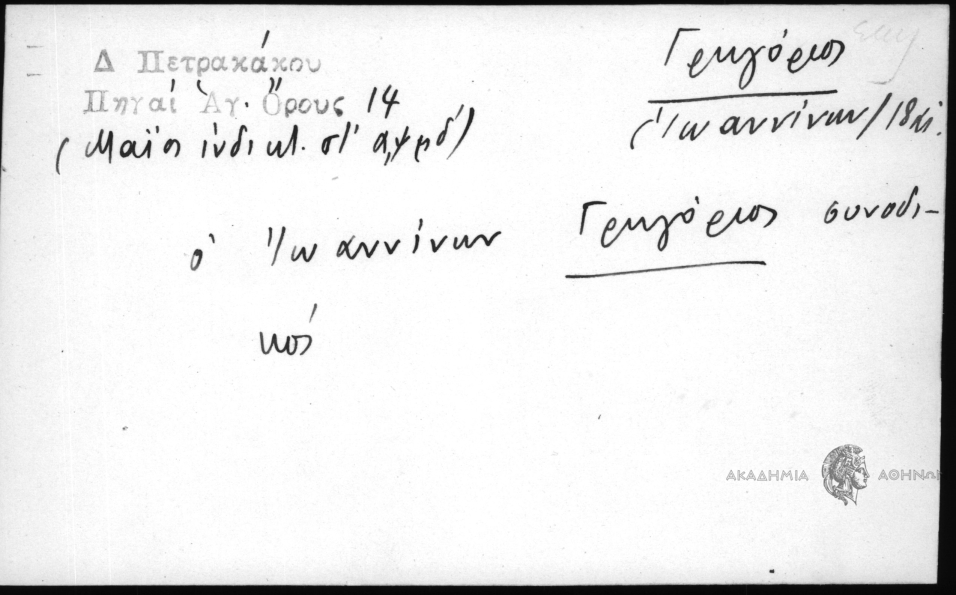 Δ Πετρακάκου
Πηγαί Ἁγ. Ὄρους 14
(Μαϊος ἰνδικτ. στ' α,ψμδ')
Γρηγόριος
(Ἰωαννίνων/18 αἰ.
ὁ Ἰωαννίνων Γρηγόριος συνοδι-
κός
ΑΚΑΔΗΜΙΑ ΑΘΗΝΩΝ